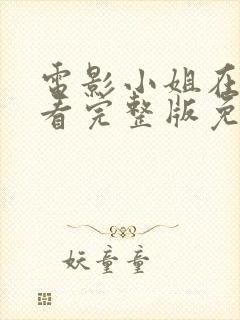 电影小姐在
看完整版免
妖童童